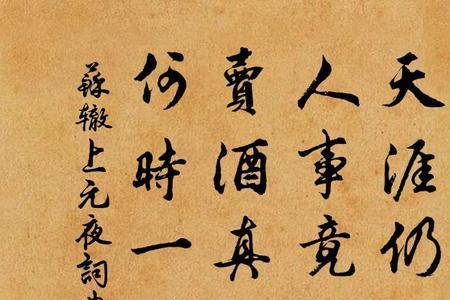 天涯仍
人事竟
賣酒真
何時一
蘇轍上元夜詞